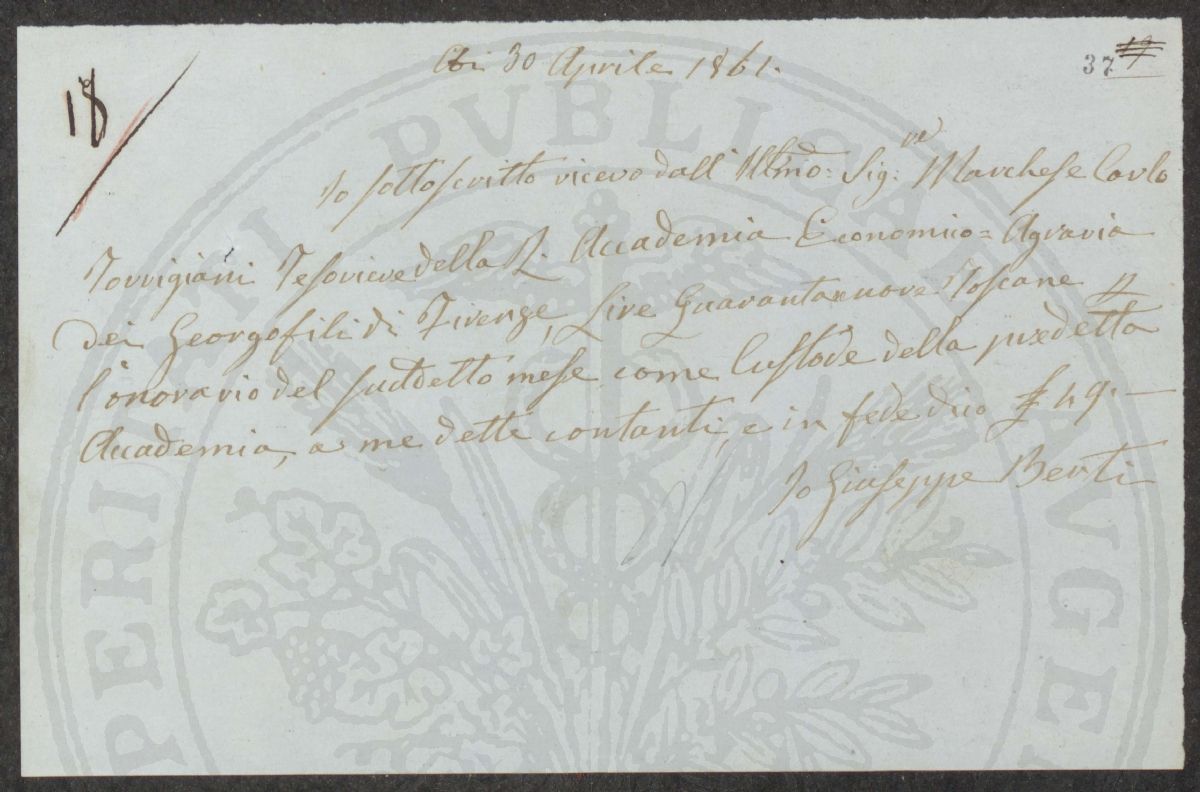 Adi 30 Aprile 1861.
37 19
18
Io sottoscritto ricevo dall' Illmo: Sig:re Marchese Carlo
Torrigiani Tesoriere della R. Accademia Economico=Agraria
dei Georgofili di Firenze, Lire Quarantanove Toscane p
l'onorario del suddetto mese come Custode della predetta
Accademia, a me dette contanti, e in fede dico £ 49. —
Io Giuseppe Berti
PERITATI PVBLICAE AVGE